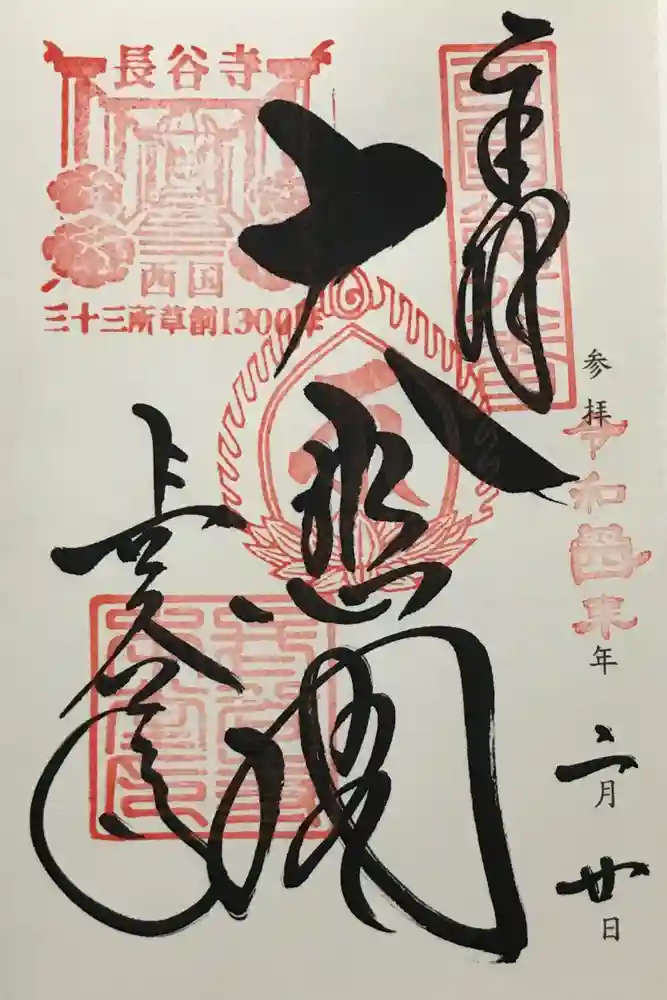 奉拝
西国第八番
参拝
令和
年
月
廿日
大悲閣
長谷寺
長谷寺
西国
三十三所草創1300年